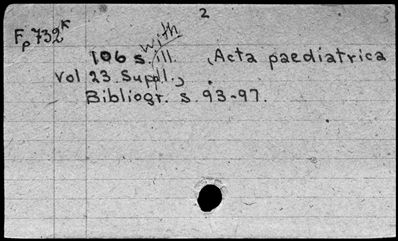 2
Fp 732K
with
106 s. ill. , Acta paediatrica
vol 23. Suppl.,
Bibliogr. s. 93-97.